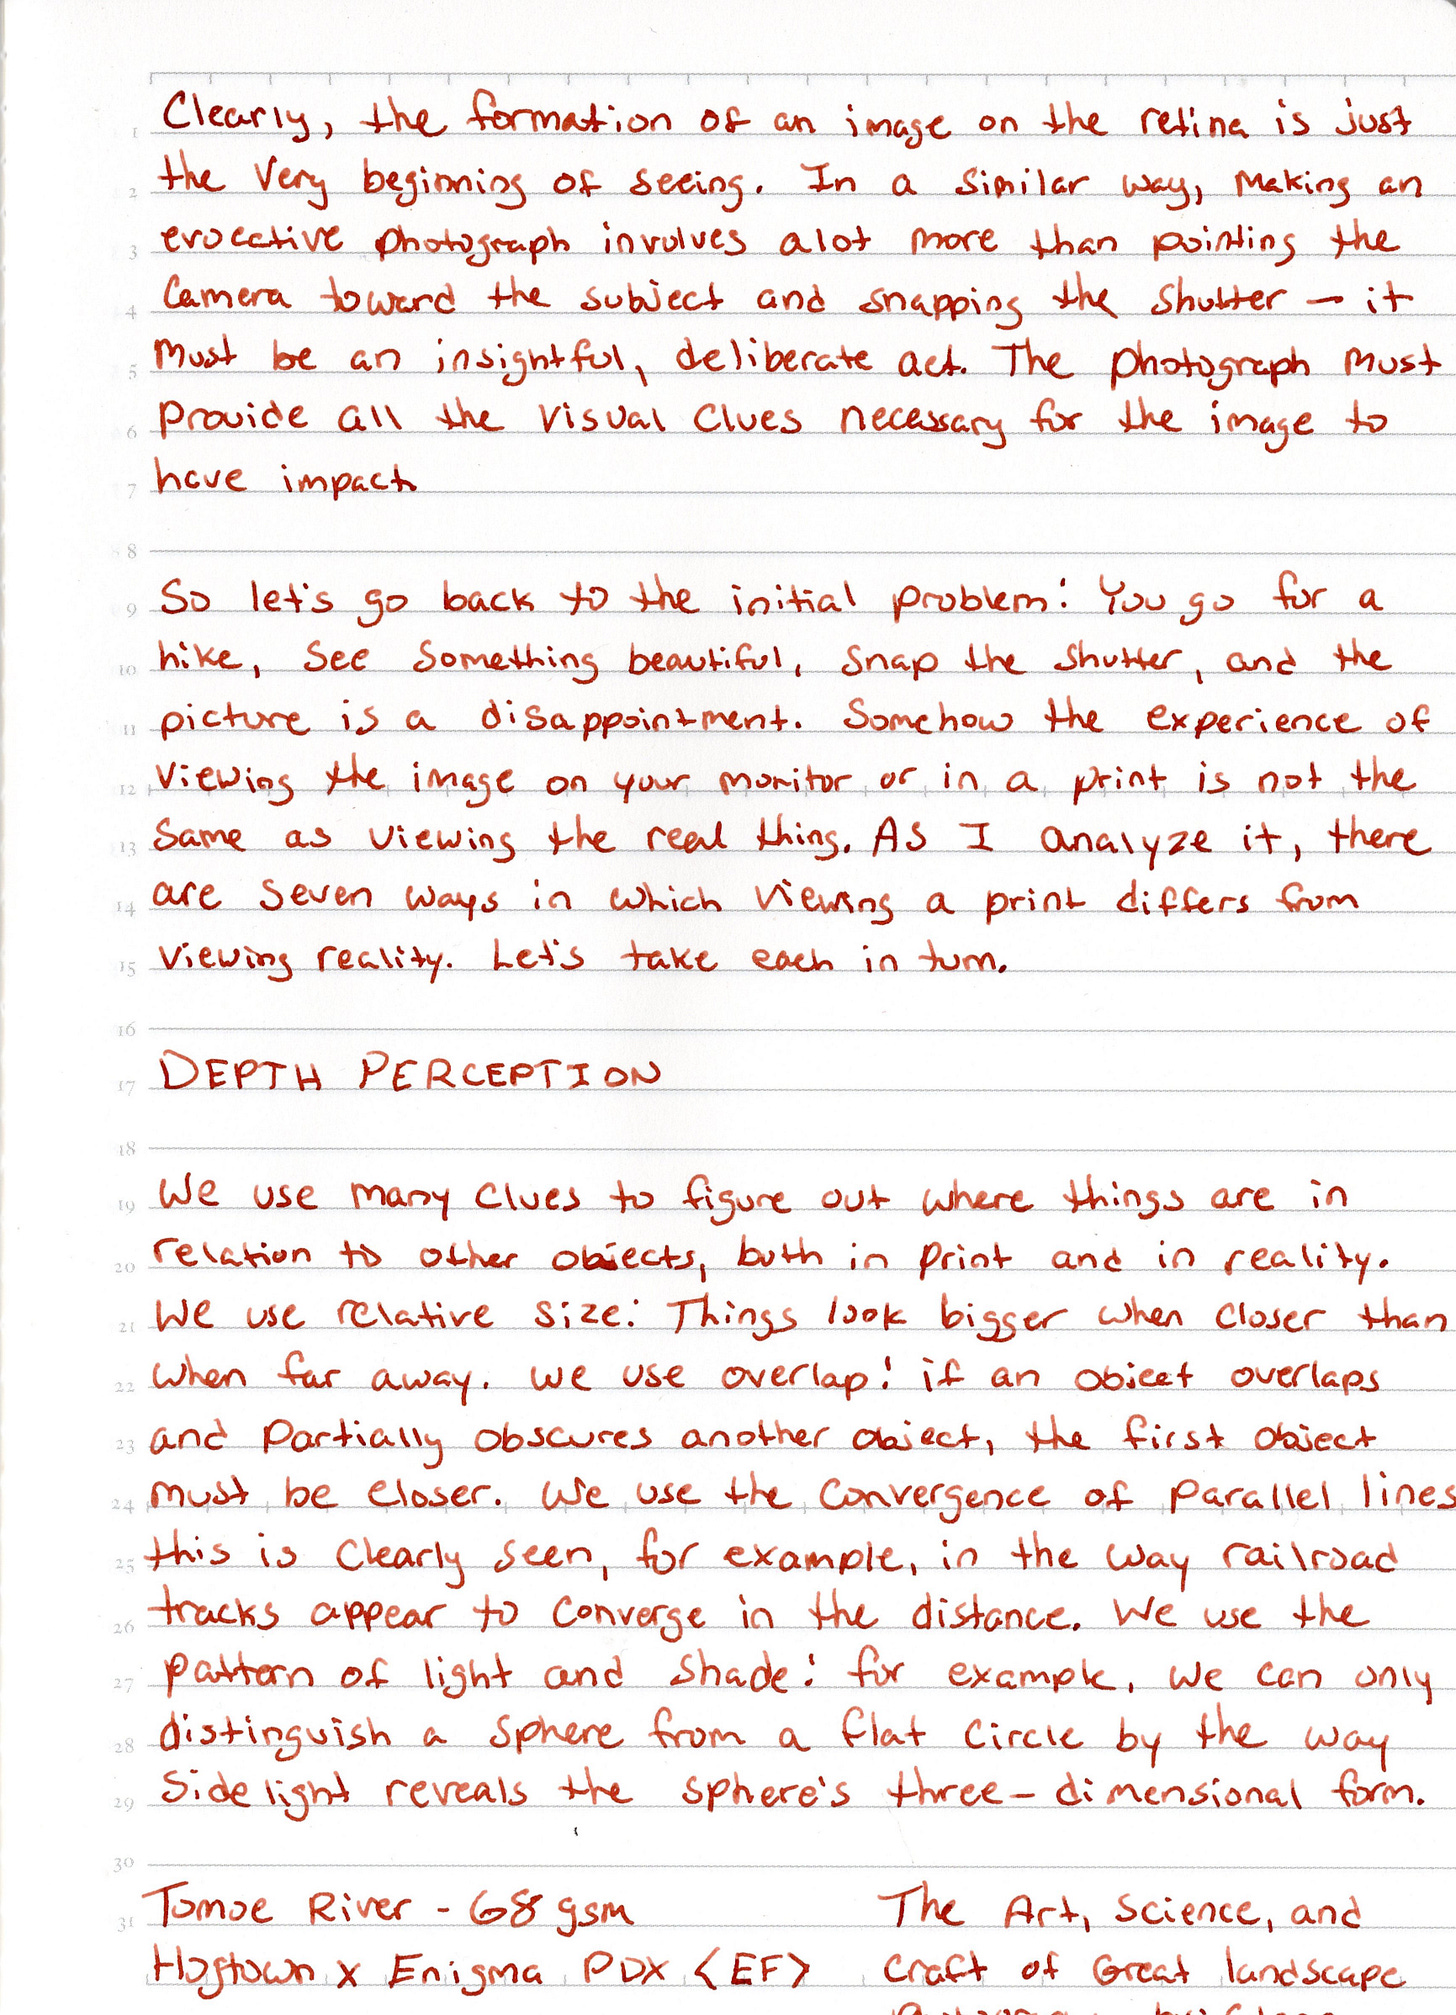 1 Clearly, the formation of an image on the retina is just
2 the very beginning of seeing. In a similar way, making an
3 evocative photograph involves alot more than pointing the
4 camera toward the subject and snapping the shutter — it
5 must be an insightful, deliberate act. The photograph must
6 provide all the visual clues necessary for the image to
7 have impact
8
9 So let's go back to the initial problem: You go for a
10 hike, see something beautiful, snap the shutter, and the
11 picture is a disappointment. Somehow the experience of
12 viewing the image on your monitor or in a print is not the
13 same as viewing the real thing. As I analyze it, there
14 are seven ways in which viewing a print differs from
15 viewing reality. Let's take each in turn.
16
17 DEPTH PERCEPTION
18
19 We use many clues to figure out where things are in
20 relation to other objects, both in print and in reality.
21 We use relative size: Things look bigger when closer than
22 when far away. We use overlap: if an object overlaps
23 and partially obscures another object, the first object
24 must be closer. We use the convergence of parallel lines
25 this is clearly seen, for example, in the way railroad
26 tracks appear to converge in the distance. We use the
27 pattern of light and shade: for example, we can only
28 distinguish a sphere from a flat circle by the way
29 sidelight reveals the sphere's three-dimensional form.
30
31 Tomoe River - 68 gsm The Art, Science, and
Hogtown x Enigma PDX <EF> Craft of Great landscape